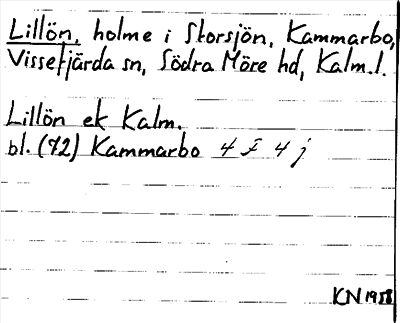 Lillön, holme i Storsjön, Kammarbo,
Vissefjärda sn, Södra Möre hd, Kalm.l.
Lillön ek Kalm.
bl. (72) Kammarbo 4 F 4 j
KN 1958